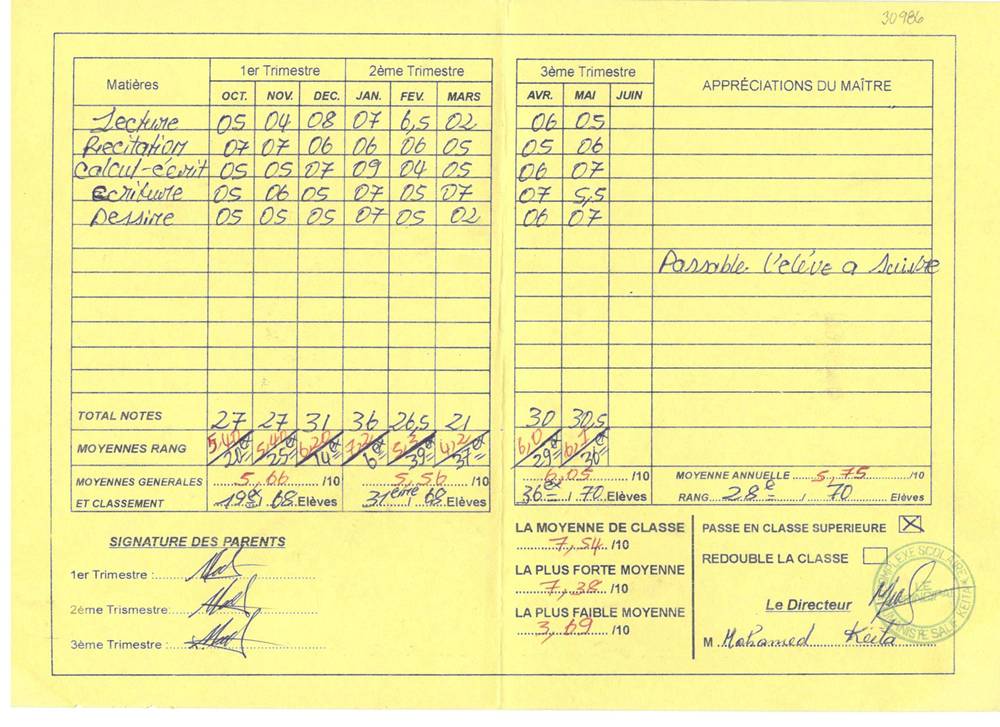 30986
Matières 1er Trimestre 2ème Trimestre 3ème Trimestre APPRÉCIATIONS DU MAÎTRE
OCT. NOV. DEC. JAN. FEV. MARS AVR. MAI JUIN
Lecture 05 04 08 07 6,5 02 06 05
Recitation 07 07 06 06 06 05 05 06
Calcul-écrit 05 05 07 09 04 05 06 07
Ecriture 05 06 05 07 05 07 07 5,5
Dessine 05 05 05 07 05 02 06 07
Passable l'elève a Suivre
TOTAL NOTES 27 27 31 36 26,5 21 30 30,5
MOYENNES RANG 5,40 20e 5,40 25e 6,20 14e 7,2 6e 5,3 39e 4,2 37e 6,0 29e 6,1 30e
MOYENNES GENERALES 5,66 /10 5,56 /10 6,05 /10 MOYENNE ANNUELLE 5,75 /10
ET CLASSEMENT 19e / 68 Elèves 31ème 68 Elèves 36e / 70 Elèves RANG 28e / 70 Elèves
SIGNATURE DES PARENTS
1er Trimestre :
2éme Trismestre:
3ème Trimestre :
LA MOYENNE DE CLASSE
7,54 /10
LA PLUS FORTE MOYENNE
7,38 /10
LA PLUS FAIBLE MOYENNE
3,69 /10
PASSE EN CLASSE SUPERIEURE
REDOUBLE LA CLASSE
Le Directeur
M Mohamed Keita
COMPLEXE SCOLAIRE
LE
SALIF KEITA